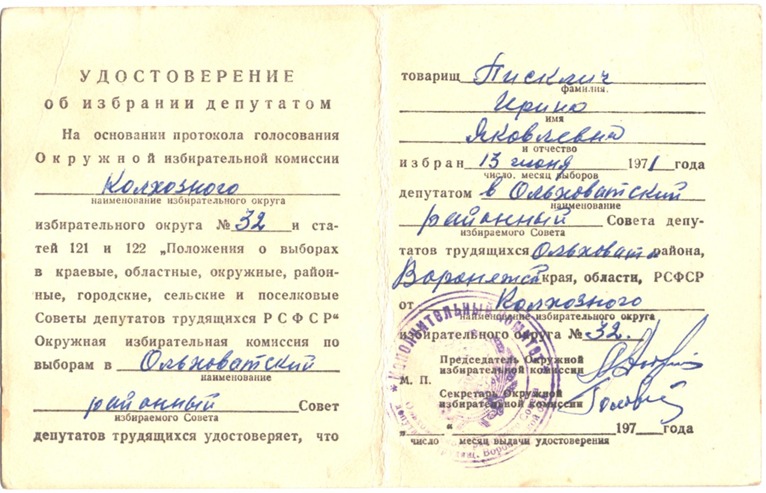 УДОСТОВЕРЕНИЕ
об избрании депутатом
На основании протокола голосования
Окружной избирательной комиссии
Колхозного
наименование избирательного округа
избирательного округа № 32 и ста-
тей 121 и 122 „Положения о выборах
в краевые, областные, окружные, район-
ные, городские, сельские и поселковые
Советы депутатов трудящихся РСФСР“
Окружная избирательная комиссия по
выборам в Ольховатский
наименование
районный Совет
избираемого Совета
депутатов трудящихся удостоверяет, что
товарищ Писклич
фамилия.
Ирина
имя
Яковлевна
и отчество
избран 13 июня 1971 года
число. месяц выборов
депутатом в Ольховатский
наименование
районный Совета депу-
избираемого Совета
татов трудящихся Ольховат района,
Воронежск края, области, РСФСР
от Колхозного
наименование избирательного округа
избирательного округа № 32.
Председатель Окружной
избирательной комиссии
М. П.
Секретарь Окружной
избирательной комиссии
„ “ 197 года
число месяц выдачи удостоверения